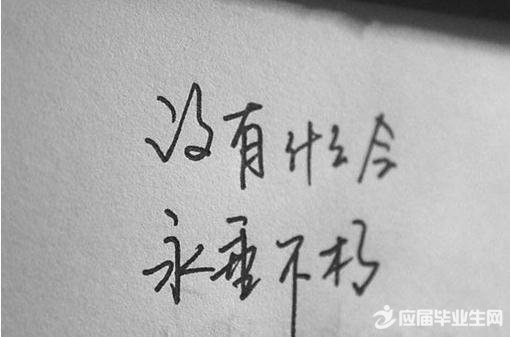 没有什么会
永垂不朽
应届毕业生网